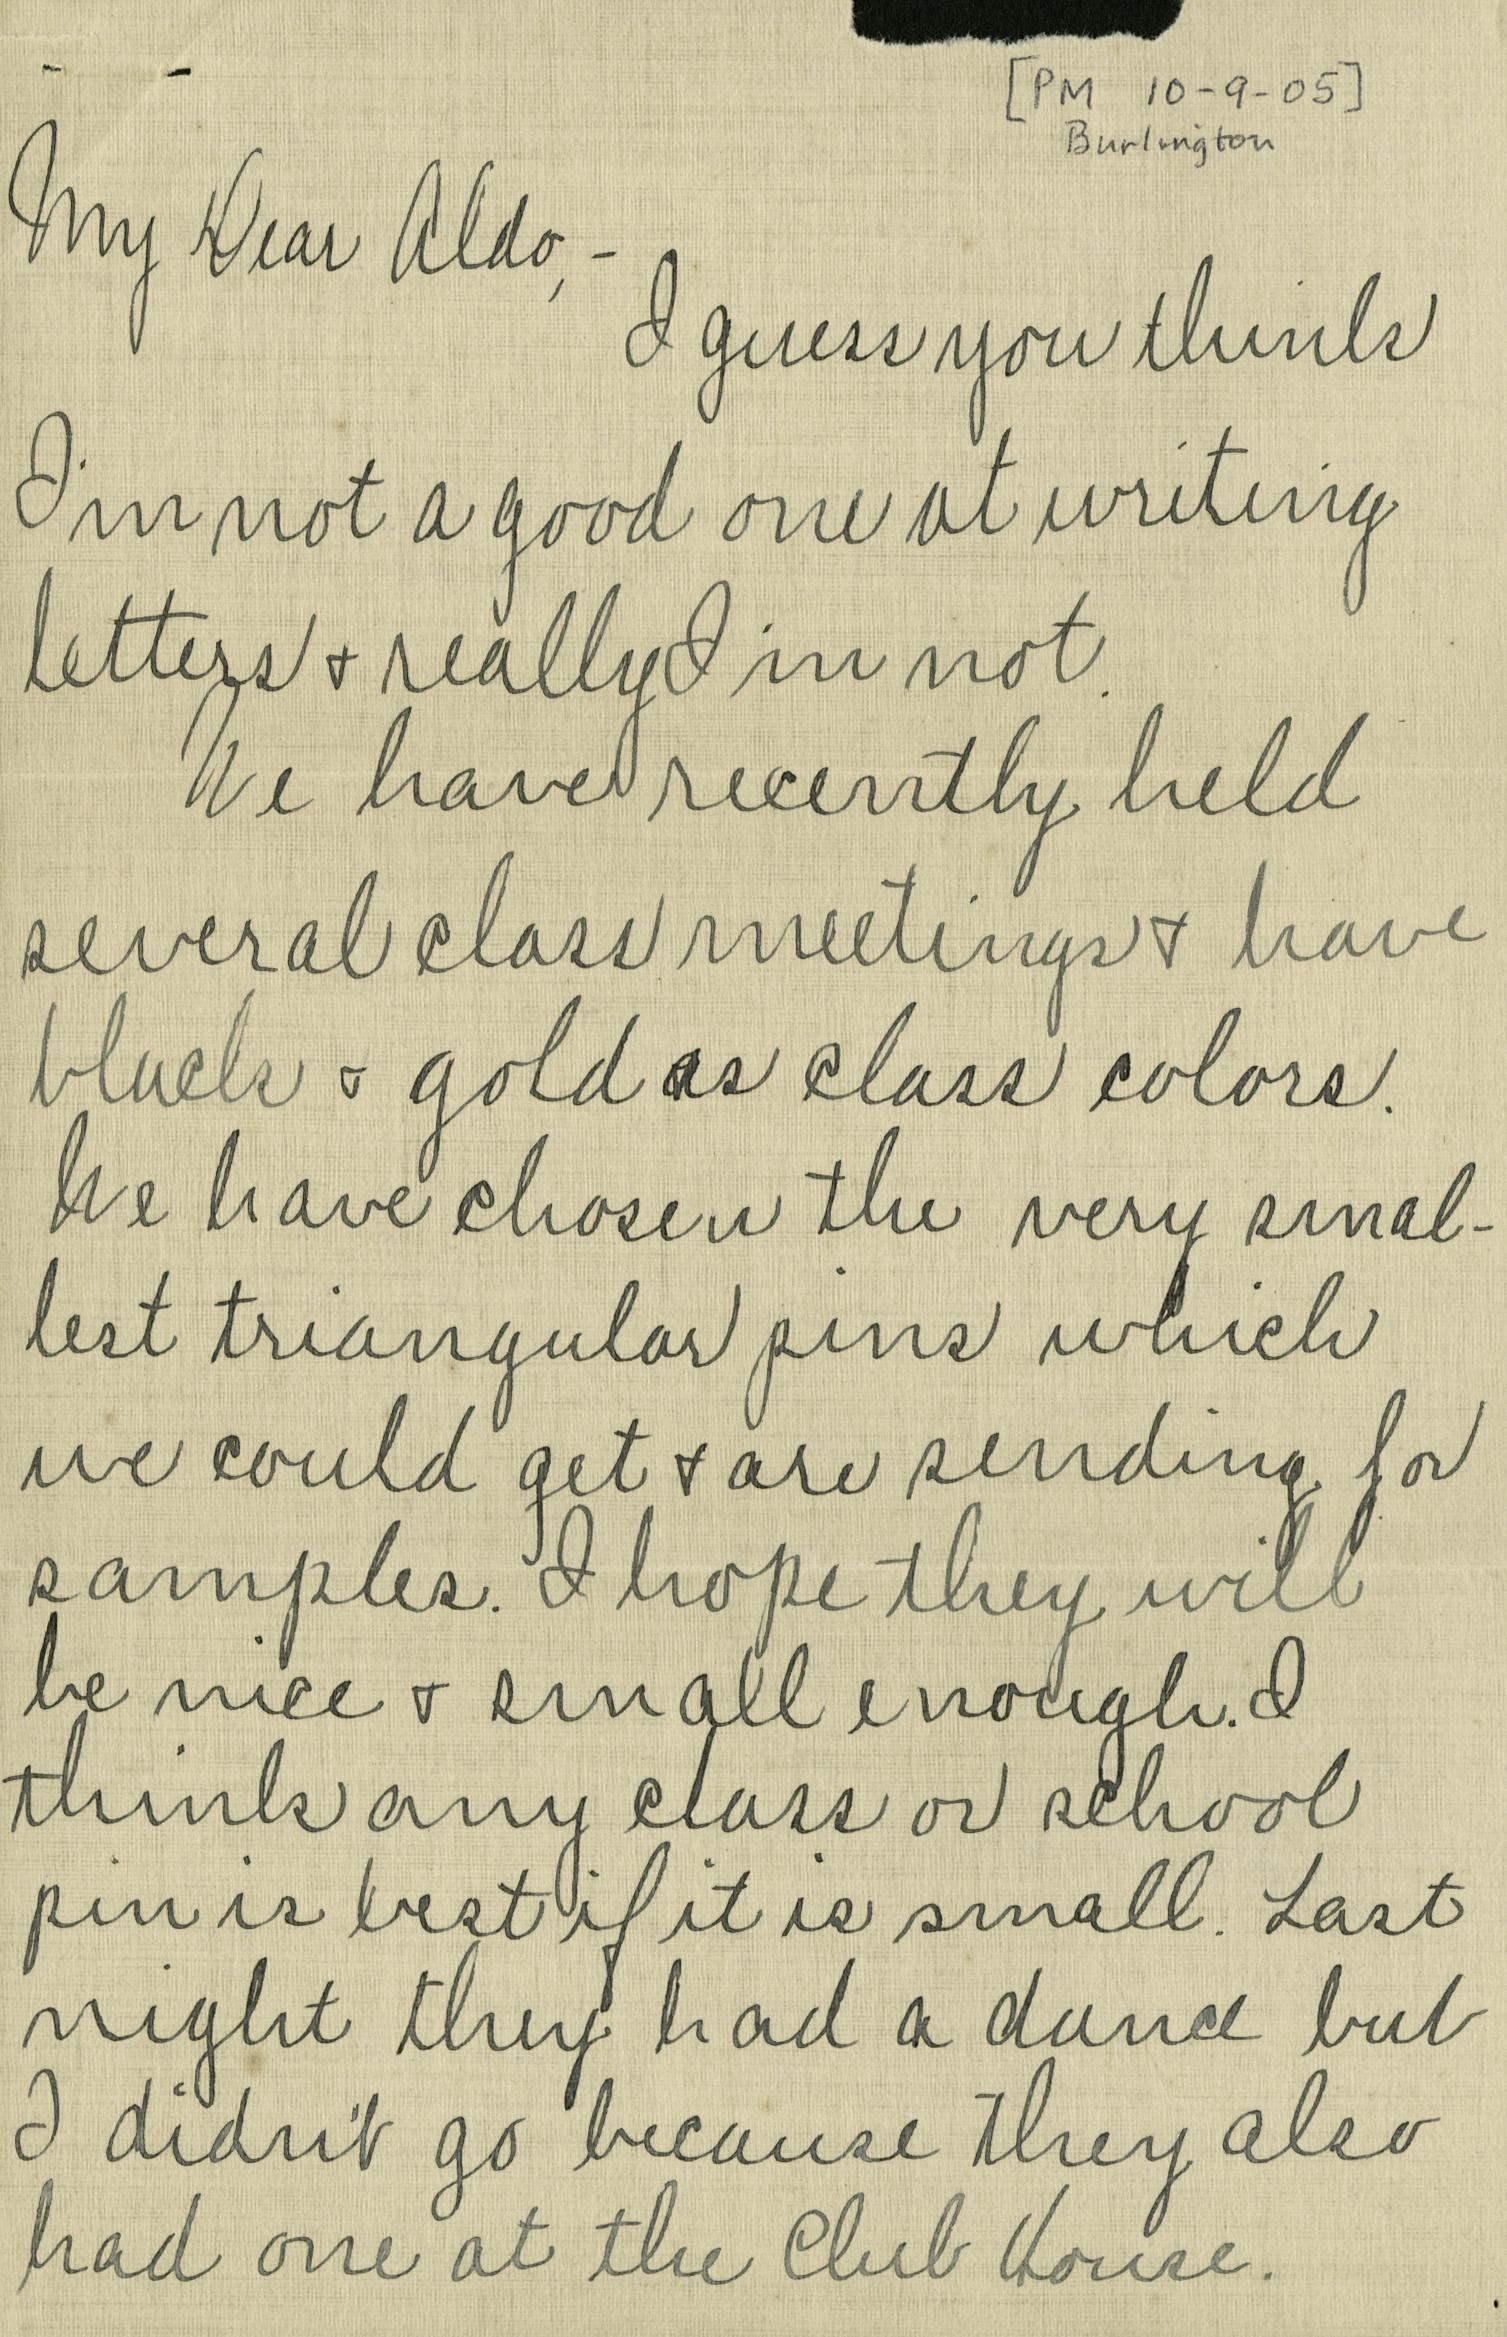 [PM 10-9-05]
Burlington
My Dear Aldo,-
I guess you think
I'm not a good one at writing
letters & really I'm not.
We have recently held
several class meetings & have
black & gold as class colors.
We have chosen the very smal-
lest triangular pins which
we could get & are sending for
samples. I hope they will
be nice & small enough. I
think any class or school
pin is best if it is small. Last
night they had a dance but
I didn't go because they also
had one at the Club House.